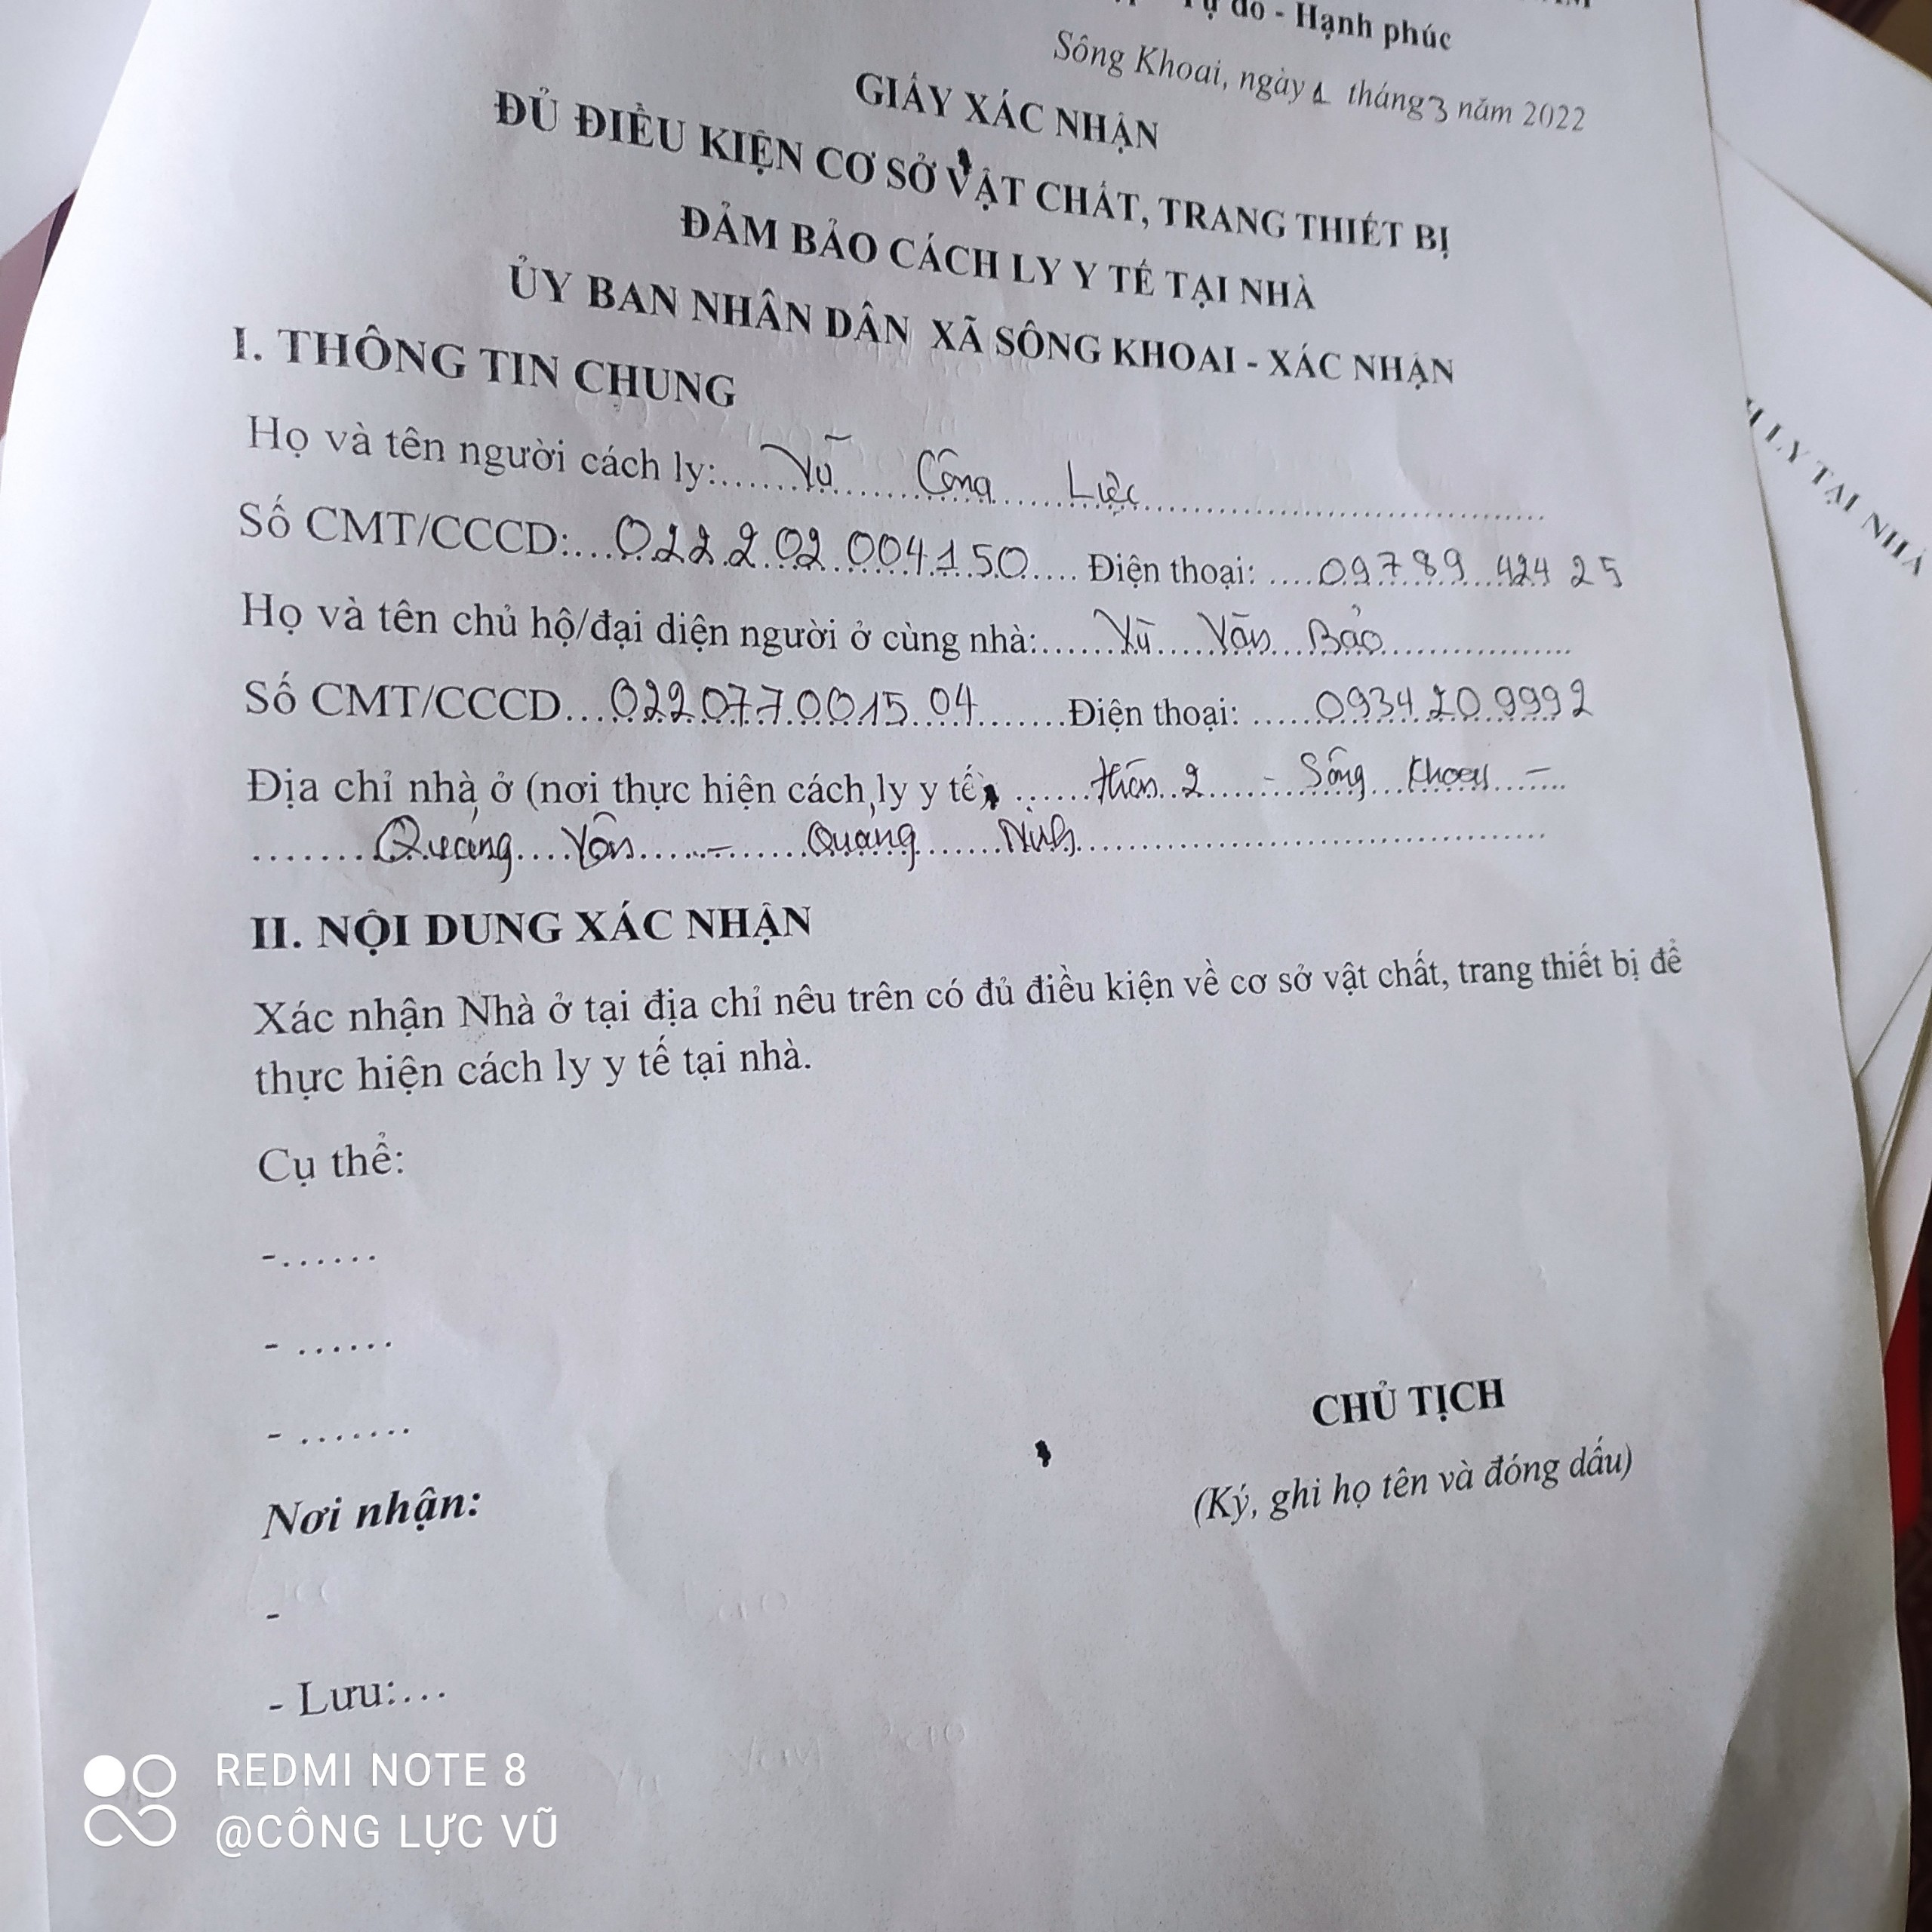 Tự do - Hạnh phúc
Sông Khoai, ngày 1 tháng 3 năm 2022
GIẤY XÁC NHẬN
ĐỦ ĐIỀU KIỆN CƠ SỞ VẬT CHẤT, TRANG THIẾT BỊ
ĐẢM BẢO CÁCH LY Y TẾ TẠI NHÀ
ỦY BAN NHÂN DÂN XÃ SÔNG KHOAI - XÁC NHẬN
I. THÔNG TIN CHUNG
Họ và tên người cách ly:......Vũ......Công......Lực..............................
Số CMT/CCCD:....022202004150..... Điện thoại: ....0978942425
Họ và tên chủ hộ/đại diện người ở cùng nhà:......Vũ.....Văn...Bảo..................
Số CMT/CCCD...022077001504.......Điện thoại: .....0934209992
Địa chỉ nhà ở (nơi thực hiện cách ly y tế) ......thôn 2 - Sông Khoai -
.......Quảng....Yên.....-......Quảng......Ninh..............................
II. NỘI DUNG XÁC NHẬN
Xác nhận Nhà ở tại địa chỉ nêu trên có đủ điều kiện về cơ sở vật chất, trang thiết bị để
thực hiện cách ly y tế tại nhà.
Cụ thể:
-......
- ......
- .......
CHỦ TỊCH
(Ký, ghi họ tên và đóng dấu)
Nơi nhận:
-
- Lưu:...
LY TẠI NHÀ
REDMI NOTE 8
@CÔNG LỰC VŨ